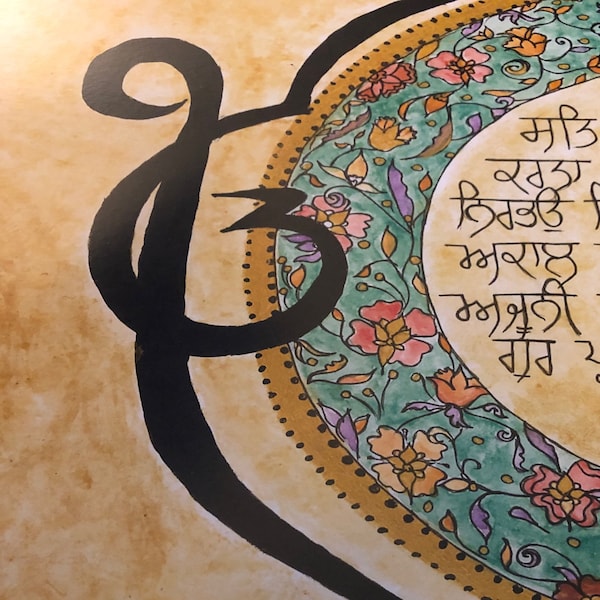 ੴ
ਸਤਿ
ਕਰਤਾ
ਨਿਰਭਉ
ਅਕਾਲ
ਅਜੂਨੀ
ਗੁਰ